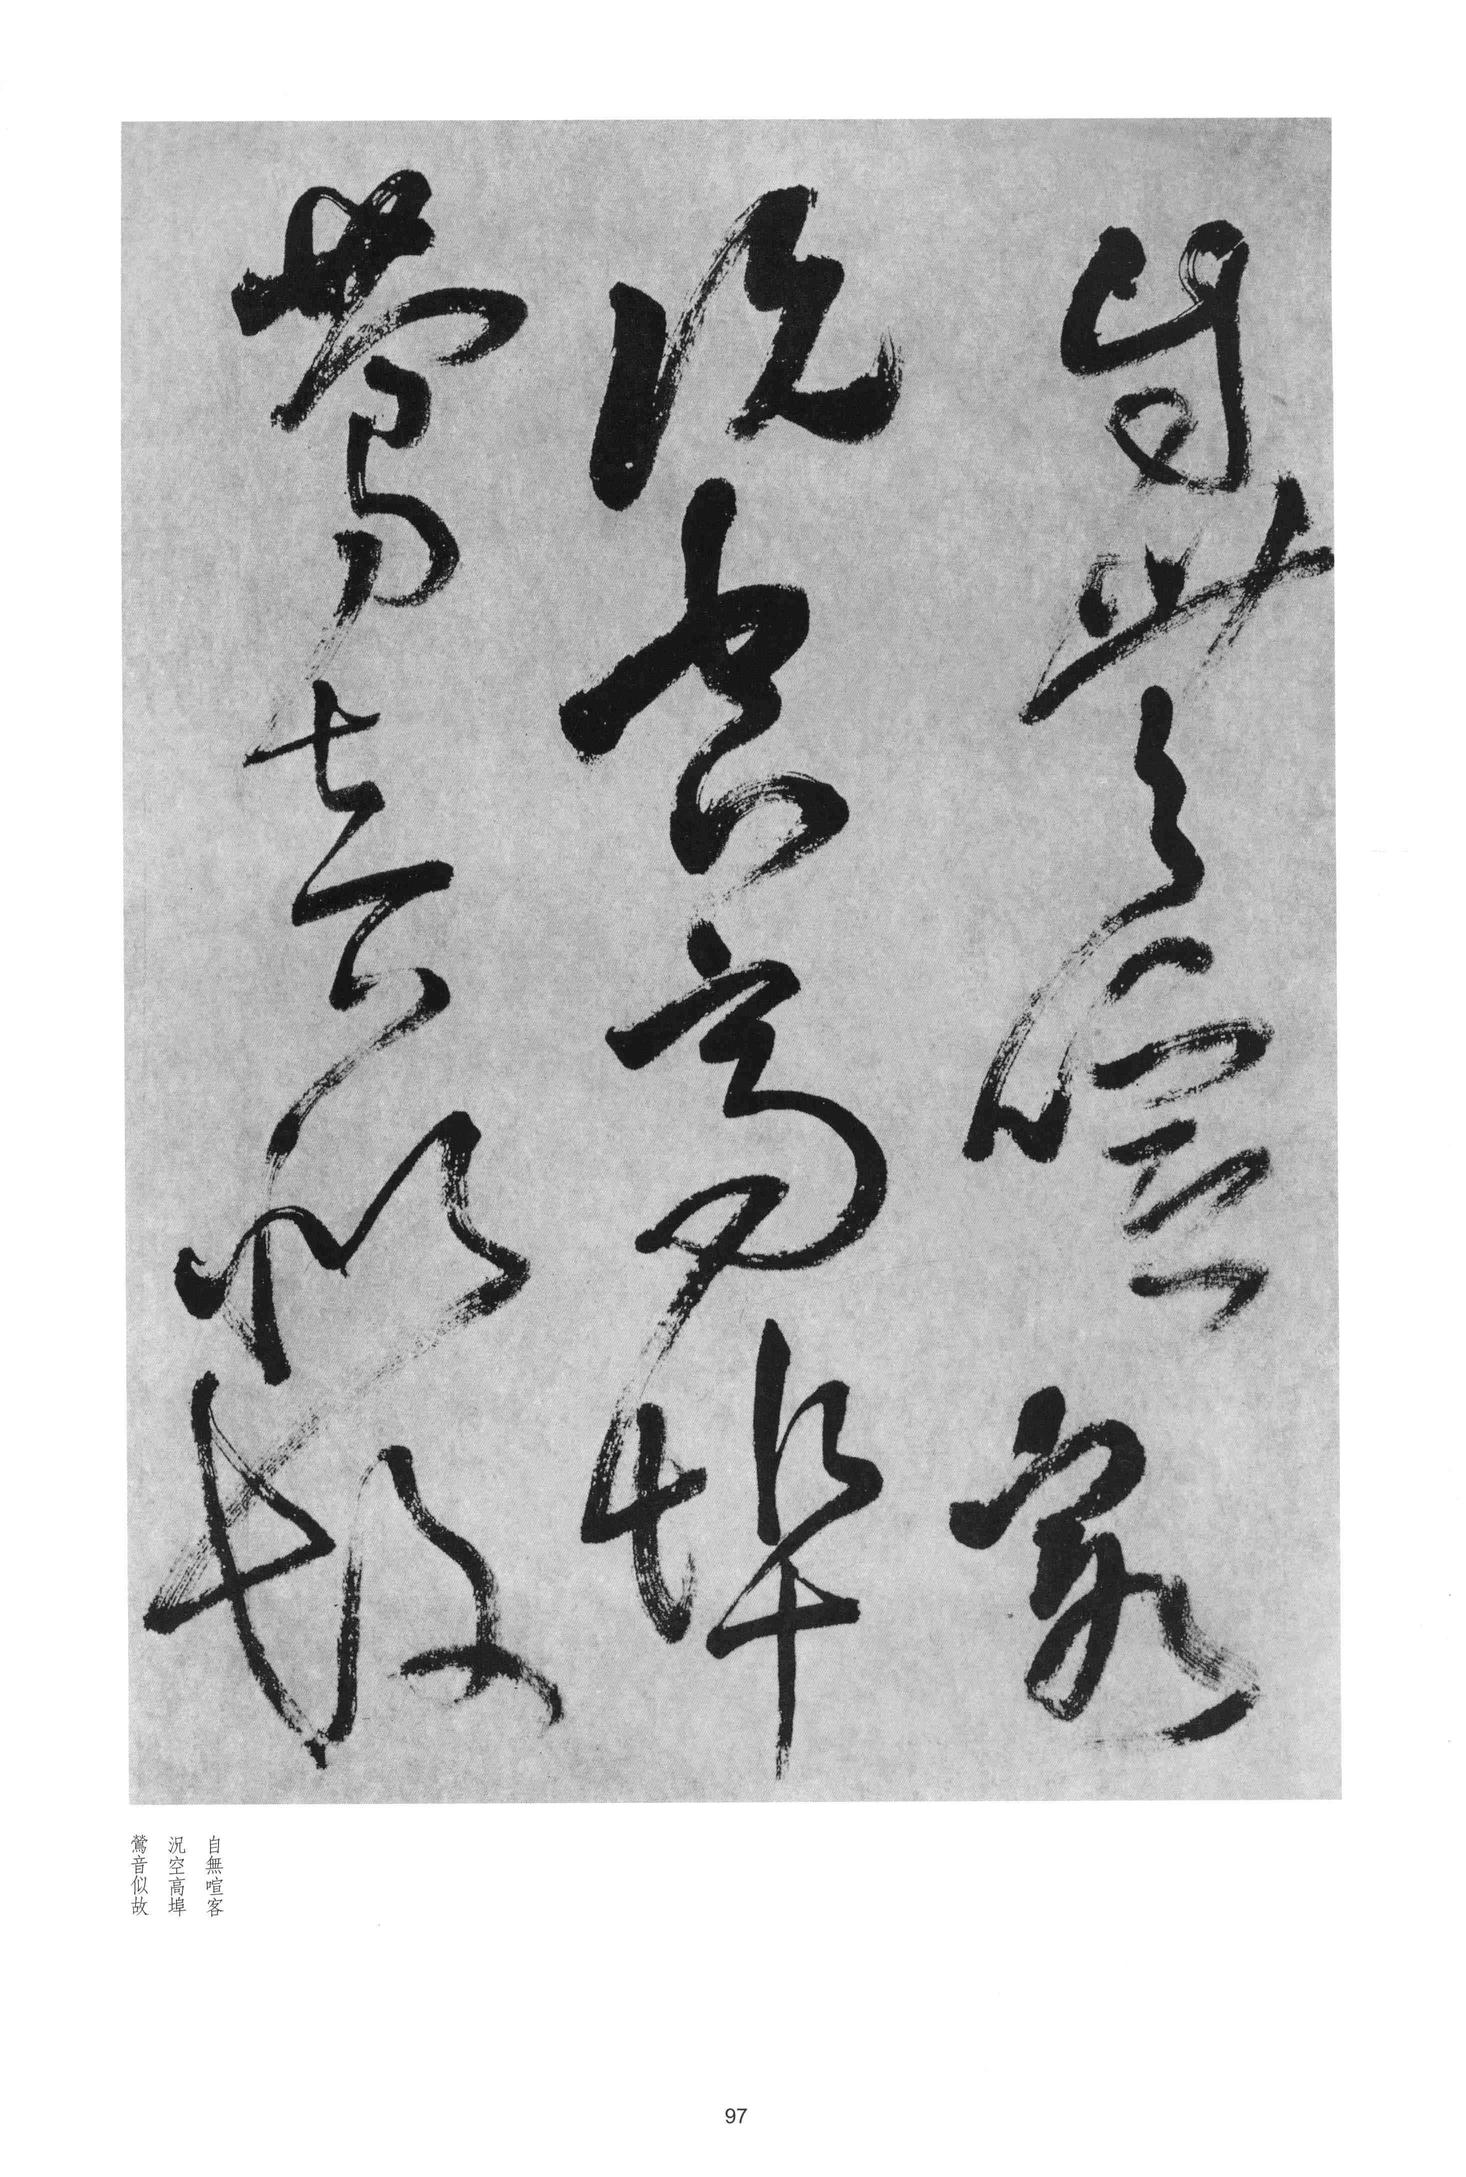 自無喧客
況空高埠
鶯音似故
自無喧客
況空高埠
鶯音似故
97